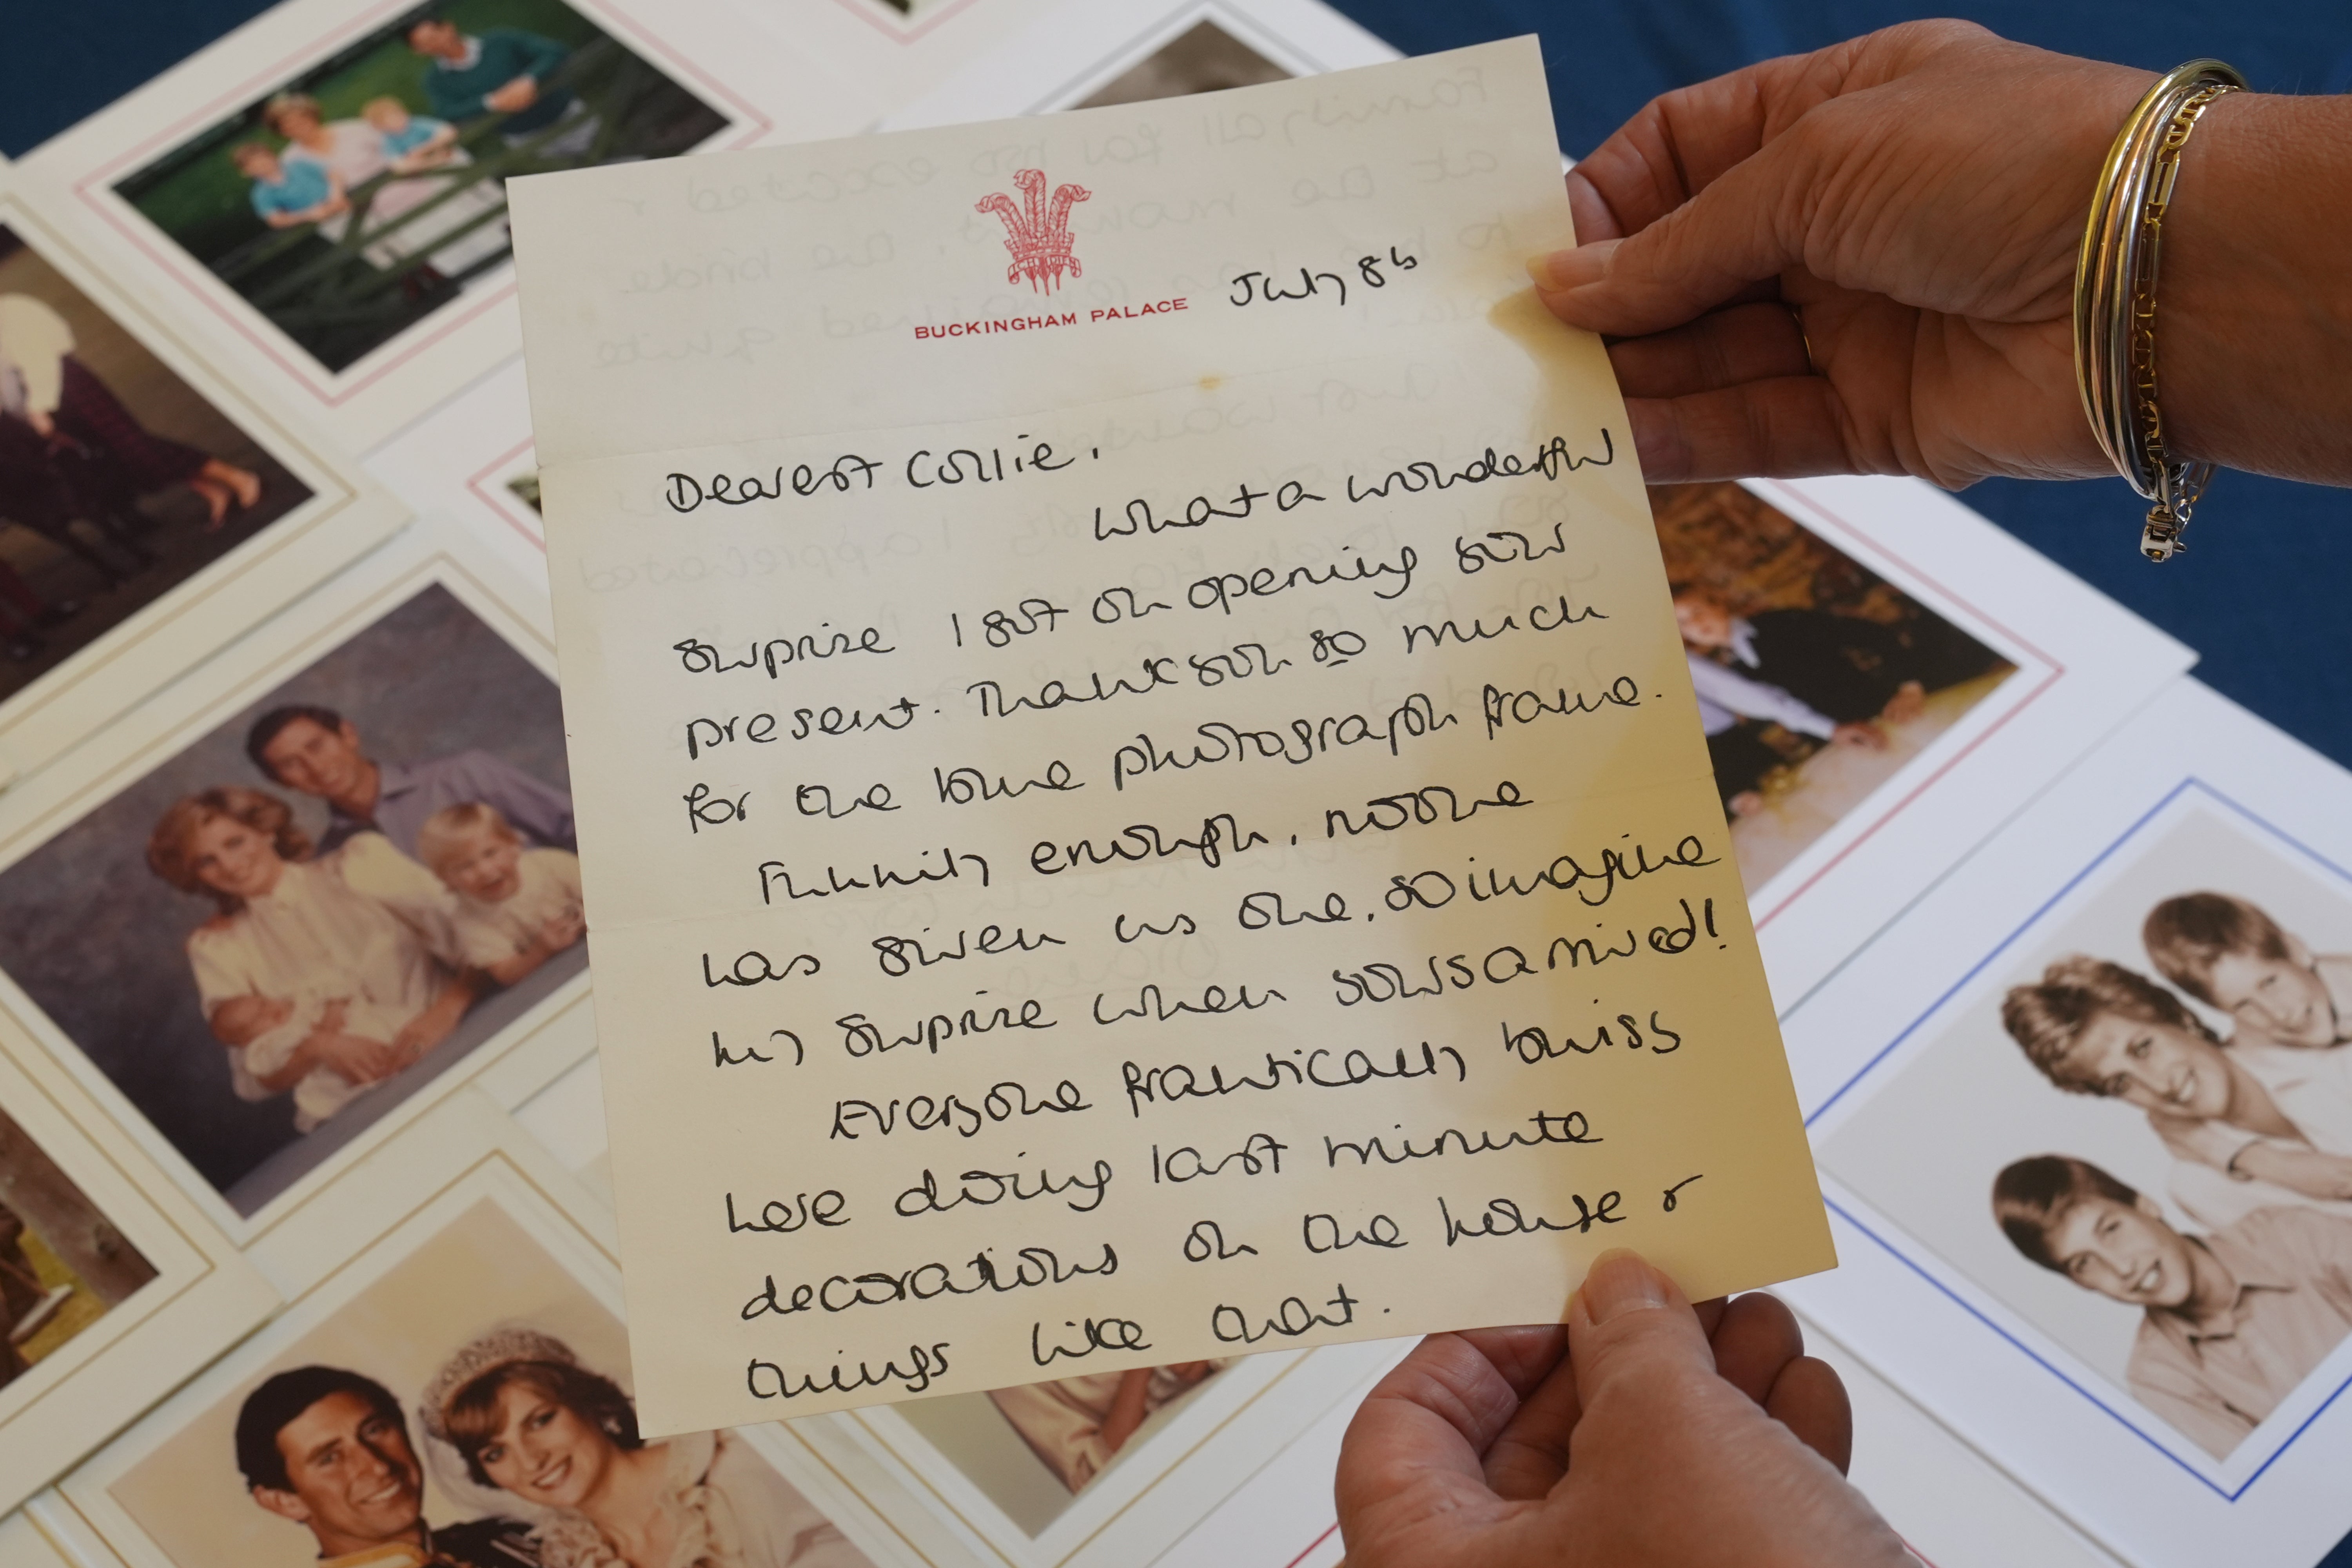 BUCKINGHAM PALACE
July 86
Dearest Collie,
What a wonderful
surprise I got on opening your
present. Thank you so much
for the blue photograph frame.
Funnily enough, no one
has given us one, so imagine
my surprise when yours arrived!
Everyone frantically busy
here doing last minute
decorations on the house &
things like that.